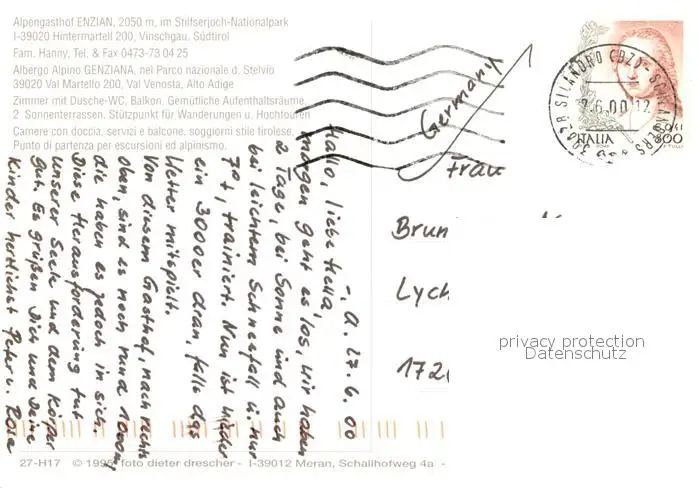 Alpengasthof ENZIAN, 2050 m, im Stilfserjoch-Nationalpark
I-39020 Hintermartell 200, Vinschgau, Südtirol
Fam. Hanny, Tel. & Fax 0473-73 04 25
Albergo Alpino GENZIANA, nel Parco nazionale d. Stelvio
39020 Val Martello 200, Val Venosta, Alto Adige
Zimmer mit Dusche-WC, Balkon. Gemütliche Aufenthaltsräume,
2 Sonnenterrassen. Stützpunkt für Wanderungen u. Hochtouren
Camere con doccia, servizi e balcone, soggiorni stile tirolese.
Punto di partenza per escursioni ed alpinismo.
27.6.00
Hallo, liebe Hella,
morgen geht es los, wir haben
2 Tage, bei Sonne und auch
bei leichtem Schneefall u. nur
7°+, trainiert. Nun ist wieder
ein 3000er dran, falls das
Wetter mitspielt.
Von diesem Gasthof, nach rechts
oben, sind es noch rund 1000m,
die haben es jedoch in sich.
Diese Herausforderung tut
unserer Seele und dem Körper
gut. Es grüßen Dich und Deine
Kinder herzlichst Peter u. Rosie
Germany
Frau
Brun
Lych
172
39028 SILANDRO (BZ) - SCHLANDERS
.6.00 12
ITALIA
800
privacy protection
Datenschutz
27-H17 © 1995 foto dieter drescher - I-39012 Meran, Schallhofweg 4a -